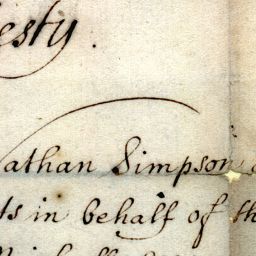 esty.
athan Simpson
ts in behalf of th